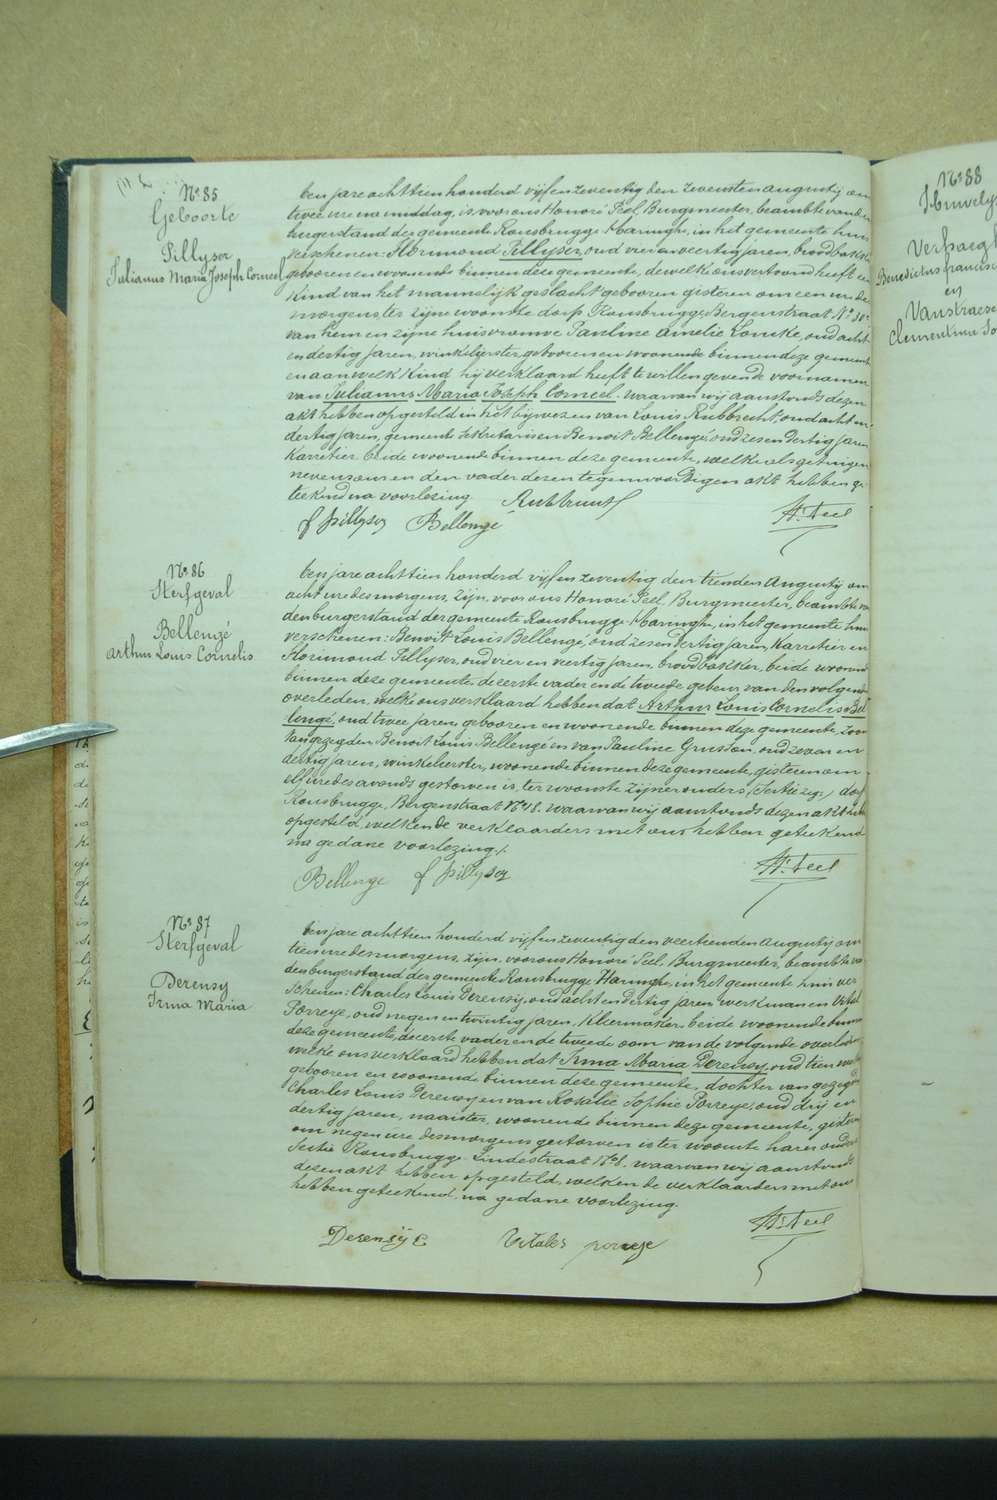 Nº 85
Geboorte
Pillyser
Julianus Maria Joseph Corneel
Ten jare achttien honderd vijf en zeventig den zevensten augustij om
twee ure na middag, is voor ons Honoré Peel, Burgmeester, beambte van den
burgerstand der gemeente Rousbrugge-Haringhe, in het gemeente huis
verschenen: Florimond Pillyser, oud vier en veertig jaren, broodbakker
gebooren en woonende binnen deze gemeente, dewelke ons vertoond heeft een
Kind van het mannelijk geslacht gebooren gisteren om een ure des
morgens ter zijne woonste dorp Rousbrugge Bergenstraat Nº
van hem en zijne huisvrouwe Pauline Amelie Loncke, oud acht
en dertig jaren, winkelierster, gebooren en woonende binnen deze gemeente
en aan welk Kind hij verklaard heeft te willen geven de voornamen
van Julianus Maria Joseph Corneel. Waarvan wij aanstonds dezen
akt hebben opgesteld in het bijwezen van Louis Rubbrecht, oud acht en
dertig jaren, gemeente sekretaris en Benoit Bellengé, oud zes en dertig jaren
Karretier beide woonende binnen deze gemeente, welke als getuigen
nevens ons en den vader dezen tegenwoordigen akt hebben ge-
teekend na voorlezing
f pillyser Bellengé
H. Peel
Nº 86
Sterfgeval
Bellengé
Arthur Louis Cornelis
Ten jare achttien honderd vijf en zeventig den tienden Augustij om
acht ure des morgens, zijn voor ons Honoré Peel, Burgmeester, beambte van
den burgerstand der gemeente Rousbrugge-Haringhe, in het gemeente huis
verschenen: Benoit Louis Bellengé, oud zes en dertig jaren, Karretier en
Florimond Pillyser, oud vier en veertig jaren, broodbakker, beide woonende
binnen deze gemeente, de eerste vader en de tweede gebuur van den volgende
overleden, welke ons verklaard hebben dat Arthur Louis Cornelis Bel-
lengé, oud twee jaren, gebooren en woonende binnen deze gemeente, zoon
van gezegden Benoit Louis Bellengé en van Pauline Gruson, oud zeven en
dertig jaren, winkelierster, woonende binnen deze gemeente, gisteren om
elf ure des avonds gestorven is, ter woonste zijner ouders, dorp
Rousbrugge, Bergenstraat Nº 48. Waarvan wij aanstonds dezen akt hebben
opgesteld, welken de verklaarders met ons hebben geteekend
na gedane voorlezing.
Bellenge f pillyser
H. Peel
Nº 87
Sterfgeval
Derensy
Irma Maria
Ten jare achttien honderd vijf en zeventig den veertienden Augustij om
tien ure des morgens, zijn voor ons Honoré Peel, Burgmeester, beambte van
den burgerstand der gemeente Rousbrugge Haringhe, in het gemeente huis ver
schenen: Charles Louis Derensy, oud acht en dertig jaren, werkman en Vital
Porreye, oud negen en twintig jaren, Kleermaker, beide woonende binnen
deze gemeente, de eerste vader en de tweede oom van de volgende overleden
welke ons verklaard hebben dat Irma Maria Derensy, oud tien
gebooren en woonende binnen deze gemeente, dochter van gezegden
Charles Louis Derensy en van Rosalie Sophie Porreye, oud drij en
dertig jaren, naaister, woonende binnen deze gemeente, gisteren
om negen ure des morgens gestorven is ter woonste harer ouders
Sectie Rousbrugge Lindestraat Nº 8. Waarvan wij aanstonds
dezen akt hebben opgesteld, welken de verklaarders met ons
hebben geteekend, na gedane voorlezing.
Derensÿ C Vitales porreye
H. Peel
Nº 88
Huwelijk
Verhaegh
Benedictus francisc
en
Vanstraese
Clementina So